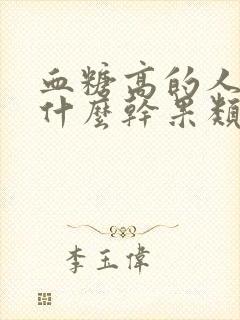 血糖高的人
什麼幹果類
李玉偉